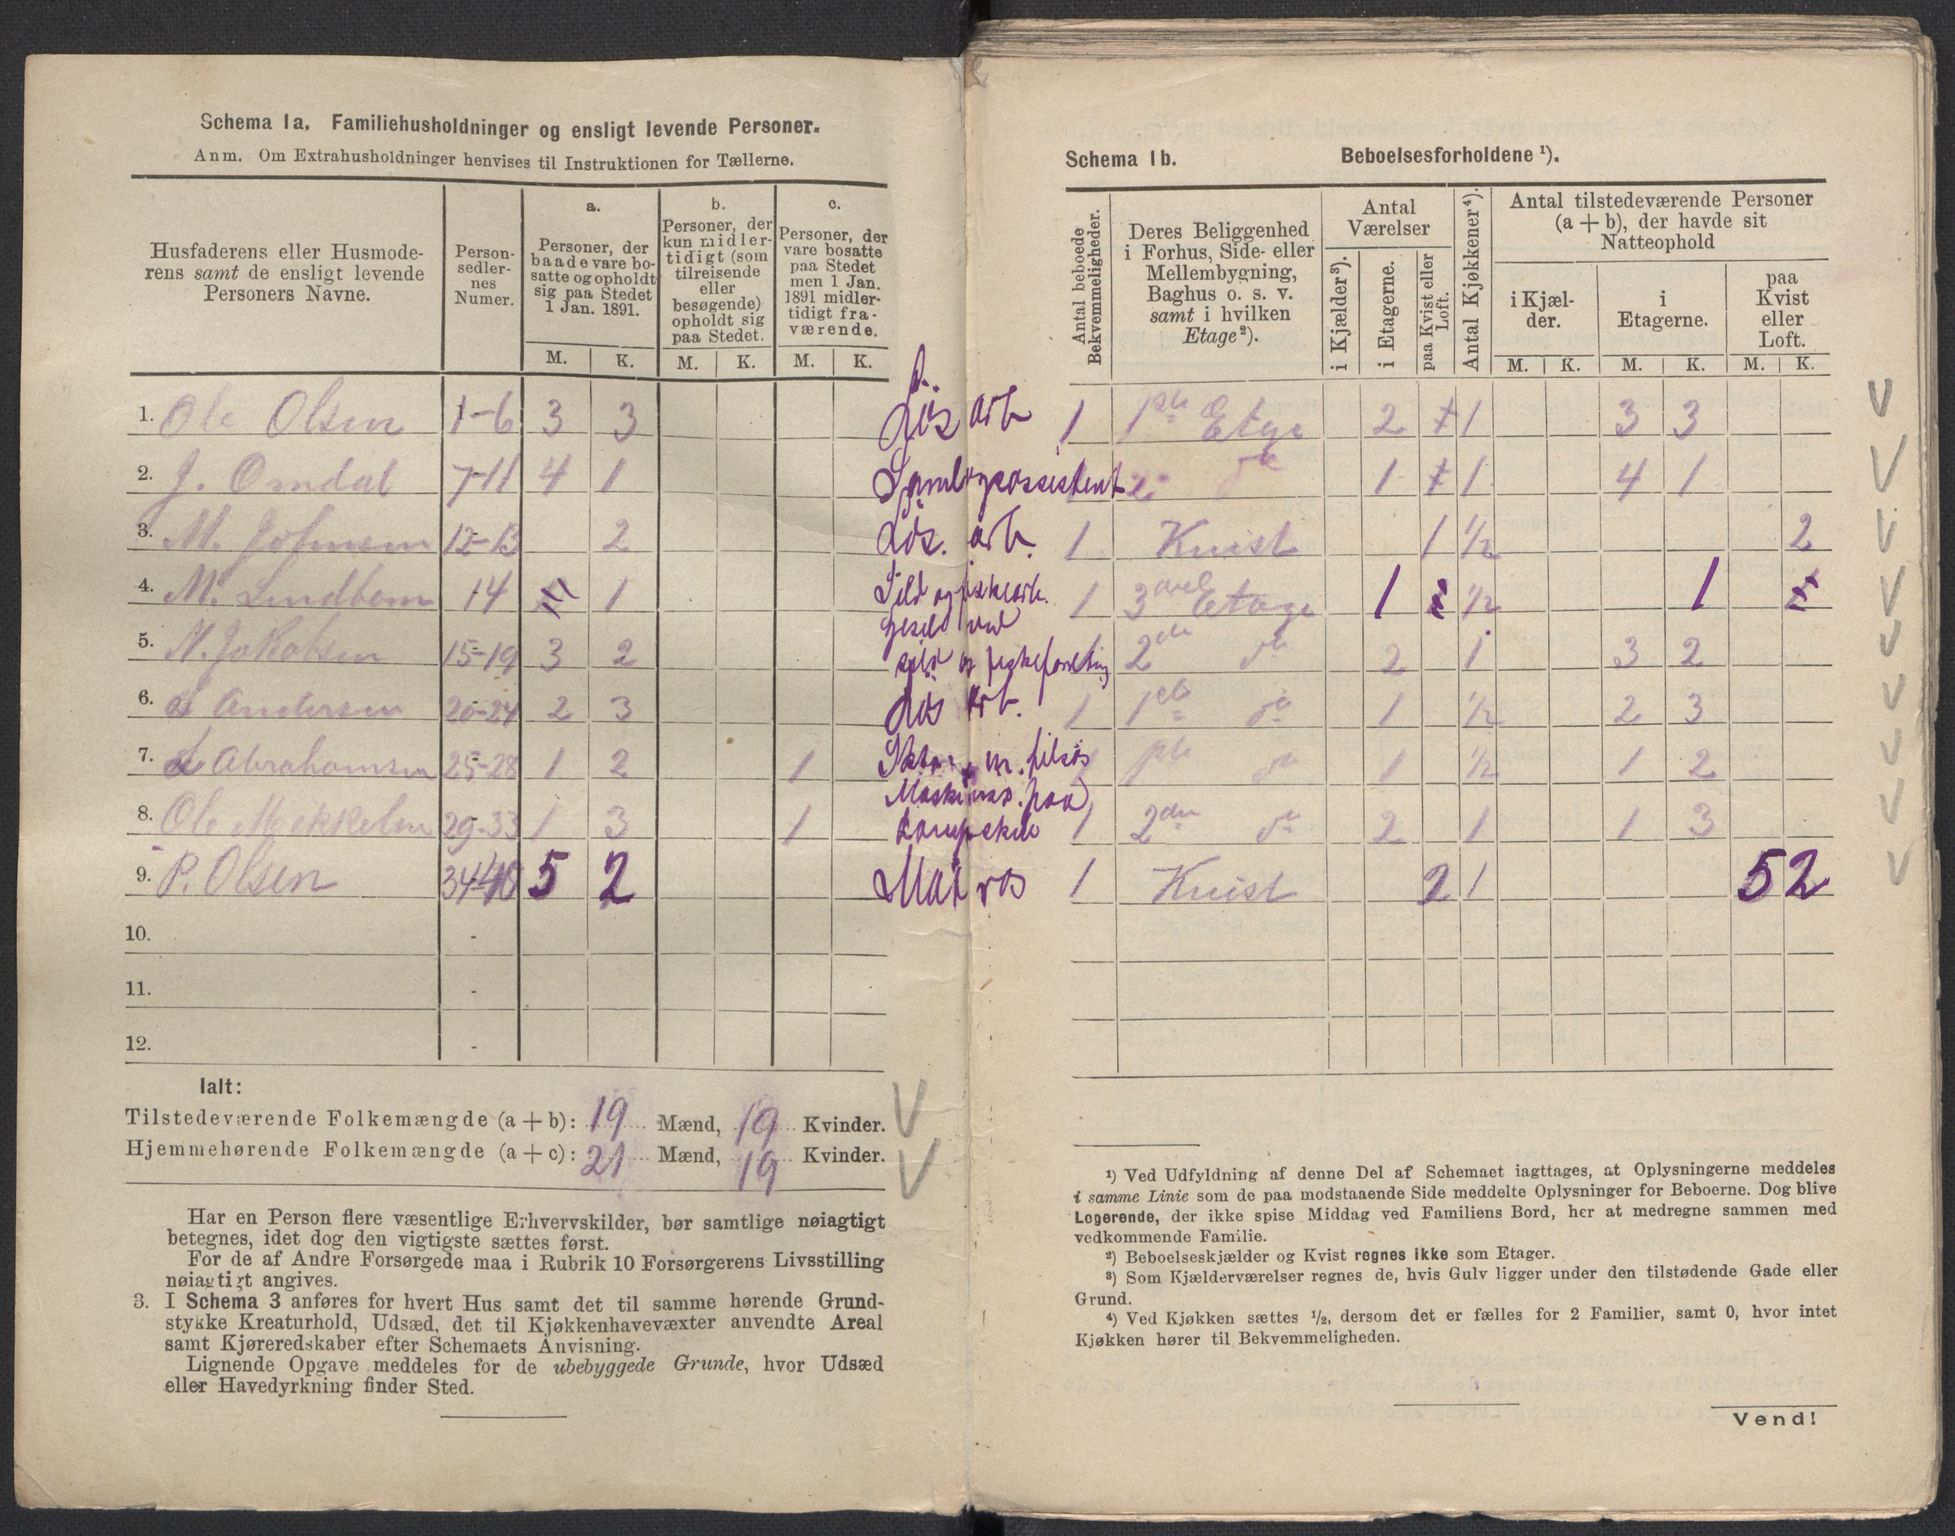 Schema 1a. Familiehusholdninger og ensligt levende Personer.
Anm. Om Extrahusholdninger henvises til Instruktionen for Tællerne.
Husfaderens eller Husmoderens samt de ensligt levende Personers Navne.
Personsedlernes Numer.
a.
Personer, der baade vare bosatte og opholdt sig paa Stedet 1 Jan. 1891.
b.
Personer, der kun midlertidigt (som tilreisende eller besøgende) opholdt sig paa Stedet.
c.
Personer, der vare bosatte paa Stedet men 1 Jan. 1891 midlertidigt fraværende.
M. K. M. K. M. K.
1. Ole Olsen 1-6 3 3
2. J. Omdal 7-11 4 1
3. M. Johnsen 12-13 2
4. M. Lindbom 14 1
5. N. Jakobsen 15-19 3 2
6. Andersen 20-24 2 3
7. Abrahamsen 25-28 1 2 1
8. Ole Mikkelsen 29-33 1 3 1
9. P. Olsen 34-40 5 2
10. -
11. -
12. -
Ialt:
Tilstedeværende Folkemængde (a + b): 19 Mænd, 19 Kvinder.
Hjemmehørende Folkemængde (a + c): 21 Mænd, 19 Kvinder.
Har en Person flere væsentlige Erhvervskilder, bør samtlige nøiagtigt
betegnes, idet dog den vigtigste sættes først.
For de af Andre Forsørgede maa i Rubrik 10 Forsørgerens Livsstilling
nøiagtigt angives.
3. I Schema 3 anføres for hvert Hus samt det til samme hørende Grund-
stykke Kreaturhold, Udsæd, det til Kjøkkenhavevæxter anvendte Areal
samt Kjøreredskaber efter Schemaets Anvisning.
Lignende Opgave meddeles for de ubebyggede Grunde, hvor Udsæd
eller Havedyrkning finder Sted.
Schema 1b. Beboelsesforholdene ¹).
Antal beboede Bekvemmeligheder.
Deres Beliggenhed i Forhus, Side- eller Mellembygning, Baghus o. s. v. samt i hvilken Etage²).
Antal Værelser
i Kjælder³).
i Etagerne.
paa Kvist eller Loft.
Antal Kjøkkener⁴).
Antal tilstedeværende Personer (a + b), der havde sit Natteophold
i Kjælder.
i Etagerne.
paa Kvist eller Loft.
M. K. M. K. M. K.
Løs arb 1 1ste Etage 2 1 3 3
1 1 4 1
Løs. arb. 1 Kvist 1 1/2 2
Sild og fiskearb. 1 3 Etage 1 1/2 1
2den do 2 1 3 2
Løs Arb. 1 1ste do 1 1/2 2 3
1ste do 1 1/2 1 2
1 2den do 2 1 1 3
Matros 1 Kvist 2 1 5 2
¹) Ved Udfyldning af denne Del af Schemaet iagttages, at Oplysningerne meddeles
i samme Linie som de paa modstaaende Side meddelte Oplysninger for Beboerne. Dog blive
Logerende, der ikke spise Middag ved Familiens Bord, her at medregne sammen med
vedkommende Familie.
²) Beboelseskjælder og Kvist regnes ikke som Etager.
³) Som Kjælderværelser regnes de, hvis Gulv ligger under den tilstødende Gade eller
Grund.
⁴) Ved Kjøkken sættes ½, dersom det er fælles for 2 Familier, samt 0, hvor intet
Kjøkken hører til Bekvemmeligheden.
Vend!